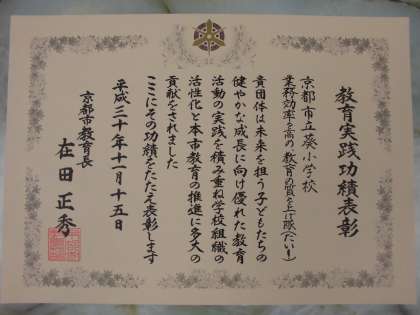 教育実践功績表彰
京都市立葵小学校
業務効率を高め、教育の質を上げ隊(たい)!
貴団体は未来を担う子どもたちの
健やかな成長に向け優れた教育
活動の実践を積み重ね学校組織の
活性化と本市教育の推進に多大の
貢献をされました
ここにその功績をたたえ表彰します
平成三十年十一月十五日
京都市教育長
在田正秀